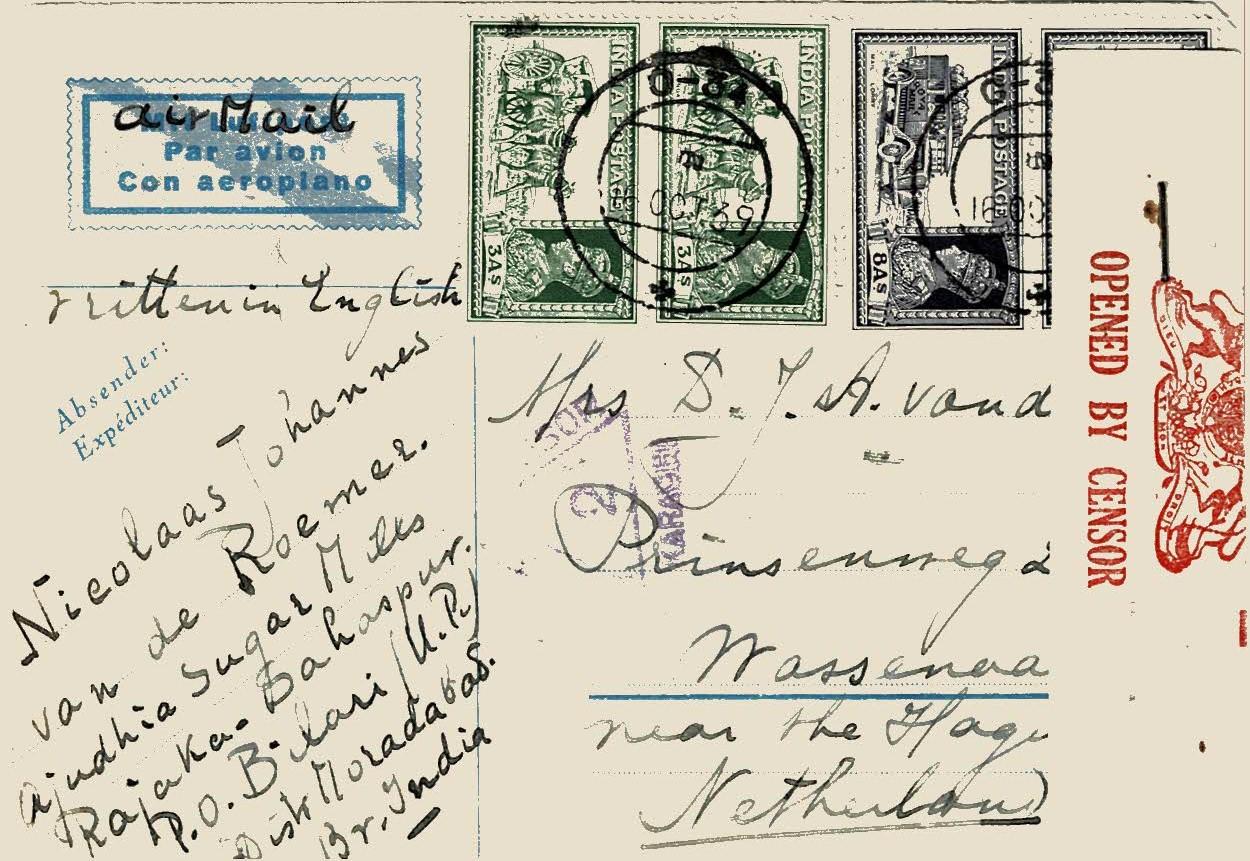 airMail
Par avion
Con aeroplano
INDIA POSTAGE
3As
INDIA POSTAGE
3As
INDIA POSTAGE
8As
O-34
OCT.39
written in English
Absender:
Expéditeur:
Nicolaas Johannes
van de Roemer.
Ajudhia Sugar Mills
Rajaka-Sahaspur.
P.O. Bilari (U.P.)
Distr Moradabad.
Br. India
Mrs D. J. A. vand
Prinsenweg
Wassenaa
near the Hag
Netherland
2
KARACHI
OPENED BY CENSOR
DIEU
ET MON
DROIT